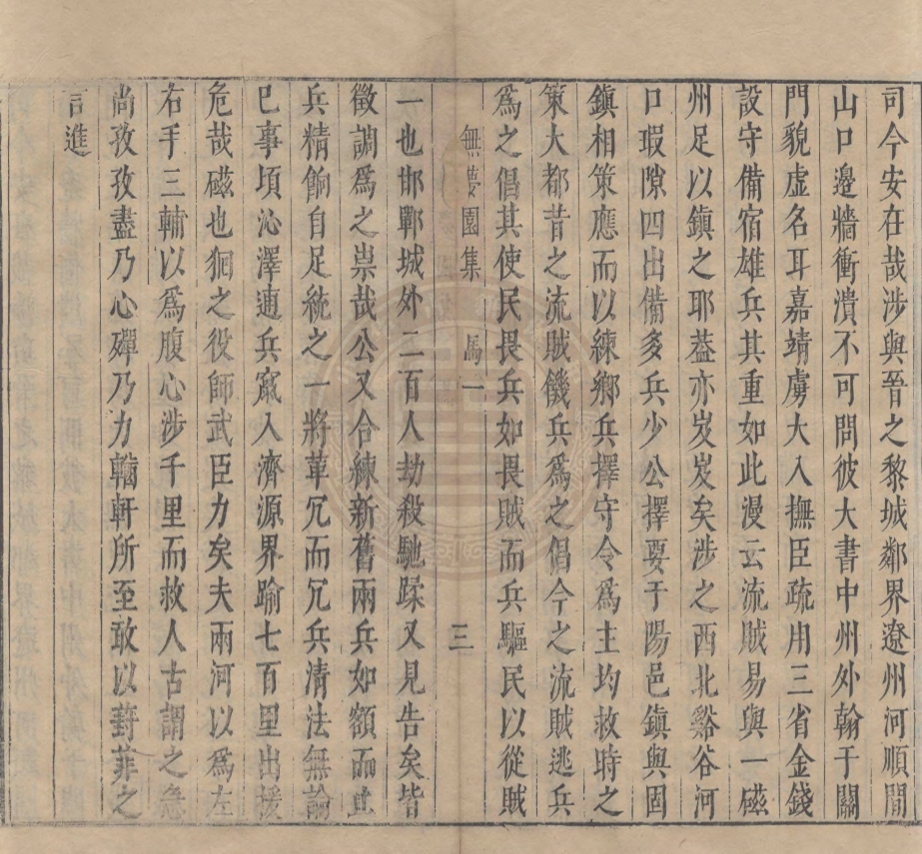 司今安在哉涉與晉之黎城鄰界遼州河順間
山口邊牆衝潰不可問彼大書中州外翰于關
門貌虛名耳嘉靖虜大入撫臣疏用三省金錢
設守備宿雄兵其重如此漫云流賊易與一磁
州足以鎮之耶葢亦岌岌矣涉之西北谿谷河
口瑕隙四出備多兵少公擇要于陽邑鎮與固
鎮相策應而以練鄉兵擇守令爲主均救時之
策大都昔之流賊饑兵爲之倡今之流賊逃兵
爲之倡其使民畏兵如畏賊而兵驅民以從賊
無夢園集 馬一 三
一也邯鄲城外二百人劫殺馳蹂又見告矣皆
徵調爲之祟哉公又合練新舊兩兵如額而止
兵精餉自足統之一將革冗而冗兵清法無論
巳事頃沁澤逋兵竄入濟源界踰七百里出援
危哉磁也狥之役師武臣力矣夫兩河以爲左
右手三輔以爲腹心涉千里而救人古謂之急
尚孜孜盡乃心殫乃力輶軒所至敢以葑菲之
言進